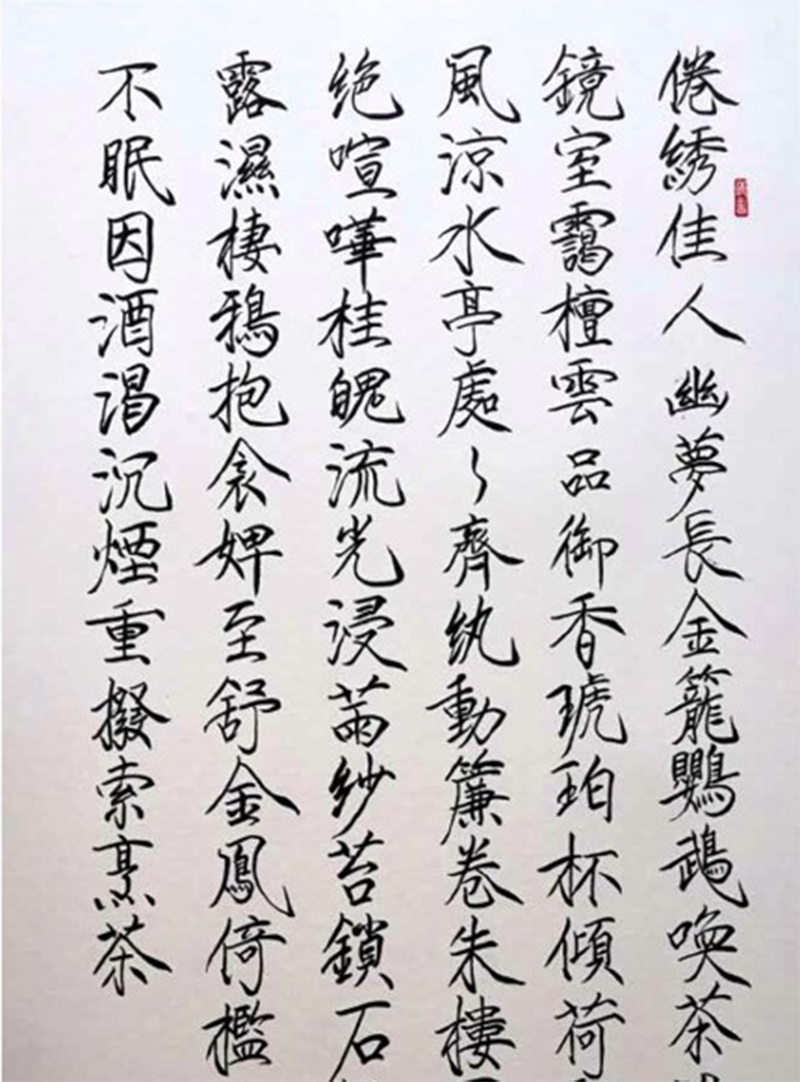 倦绣佳人幽夢長金籠鸚鵡喚茶
鏡室靄檀雲品御香琥珀杯傾荷
風涼水亭處々齊纨動簾卷朱樓
绝喧嘩桂魄流光浸茜纱苔鎖石
露濕棲鴉抱衾婢至舒金鳳倚檻
不眠因酒渴沉煙重撥索烹茶